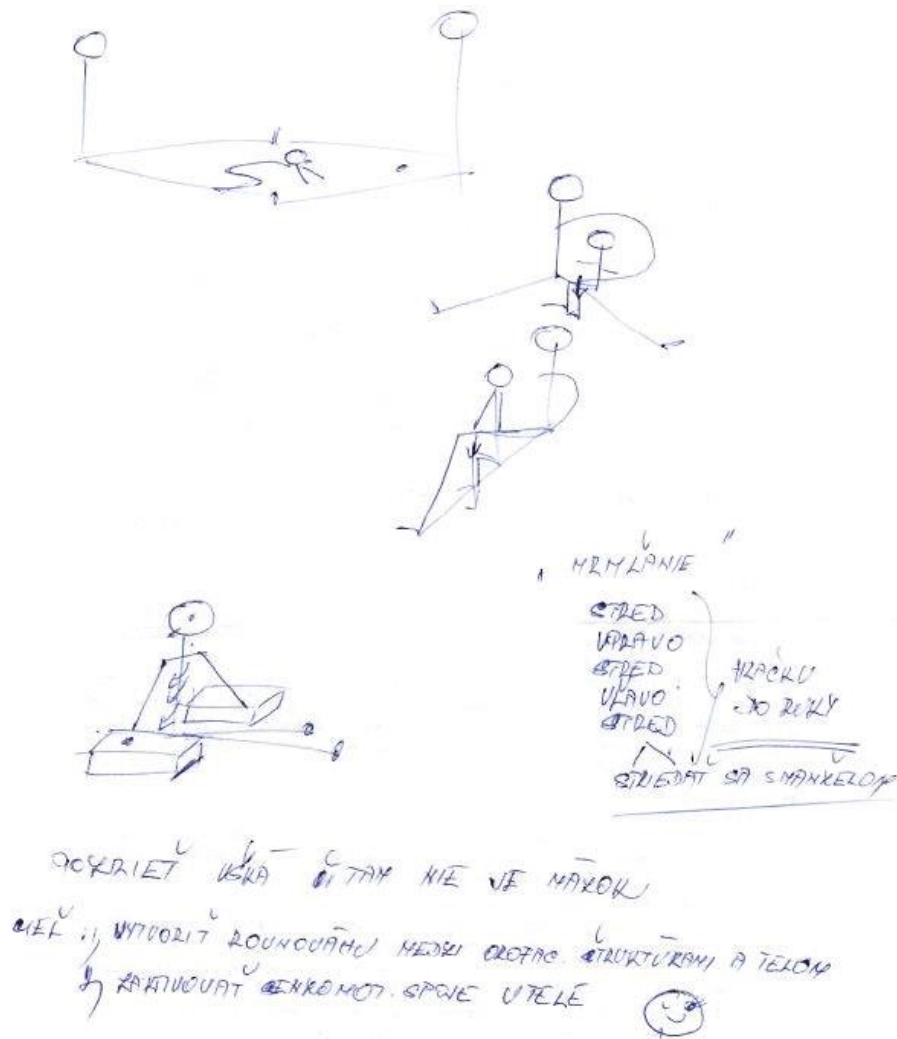 „MRMĽANIE"
STRED
VPRAVO
STRED
VĽAVO
STRED
HRAČKU
DO RUKY
STRIEDAŤ SA S MANŽELOM
POZRIEŤ UŠKÁ ČI TAM NIE JE
CIEĽ: 1, VYTVORIŤ ROVNOVÁHU MEDZI OROFAC. ŠTRUKTÚRAMI A TELOM
2, ZAKTIVOVAŤ SENZOMOT. SPOJE V TELE